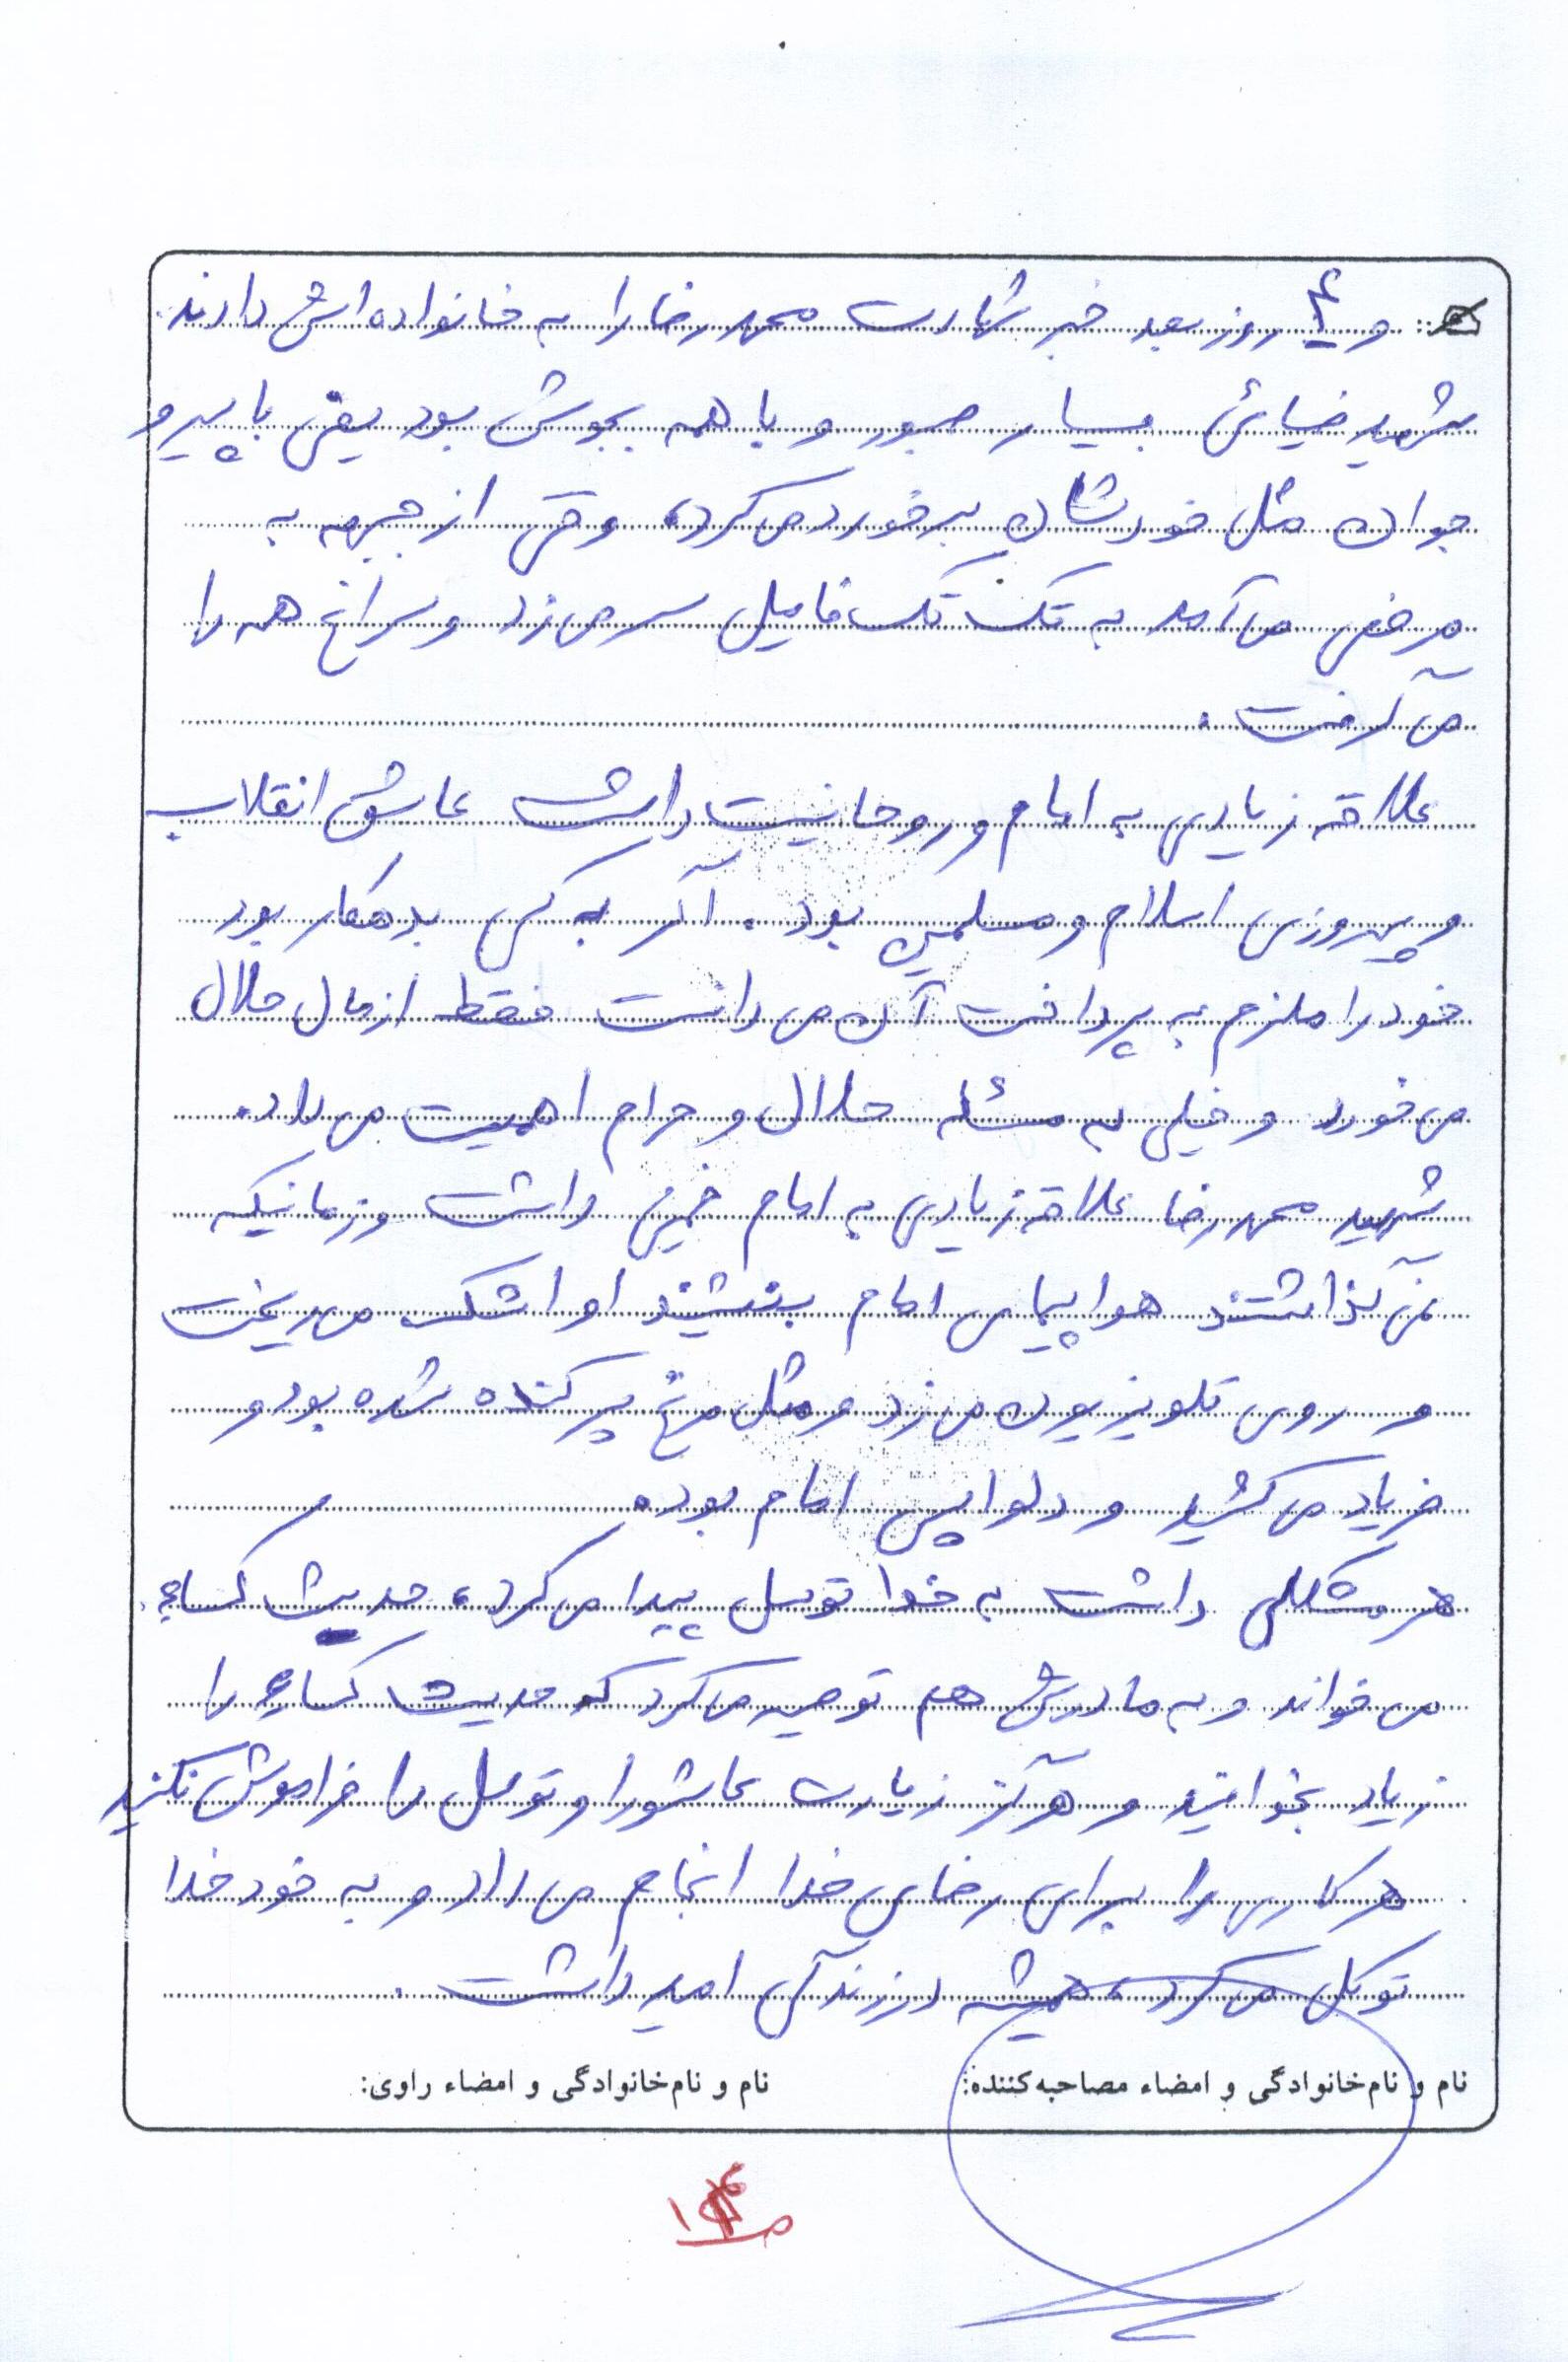 و ۴ روز بعد خبر شهادت محمدرضا را به خانواده اش دادند.
شهید ضیائی بسیار صبور و با همه بجوش بود یعنی با پیر و
جوان مثل خودشان برخورد می کرد، وقتی از جبهه به
مرخصی می آمد به تک تک فامیل سر می زد و سراغ همه را
می گرفت.
علاقه زیادی به امام و روحانیت داشت عاشق انقلاب
و پیروزی اسلام و مسلمین بود. اگر به کسی بدهکار بود
خود را ملزم به پرداخت آن می دانست فقط از مال حلال
می خورد و خیلی به مسئله حلال و حرام اهمیت می داد.
شهید محمدرضا علاقه زیادی به امام خمینی داشت و زمانیکه
نمی گذاشتند هواپیمای امام بنشیند او اشک می ریخت
و روی تلویزیون می زد و مثل مرغ پر کنده شده بود و
فریاد می کشید و دلواپس امام بود.
هر مشکلی داشت به خدا توسل پیدا می کرد، حدیث کساء
می خواند و به مادرش هم توصیه می کرد که حدیث کساء را
زیاد بخوانید و هرگز زیارت عاشورا و توسل را فراموش نکنید
هر کاری را برای رضای خدا انجام می داد و به خود خدا
توکل می کرد، همیشه در زندگی امید داشت.
نام و نام خانوادگی و امضاء مصاحبه کننده: نام و نام خانوادگی و امضاء راوی: